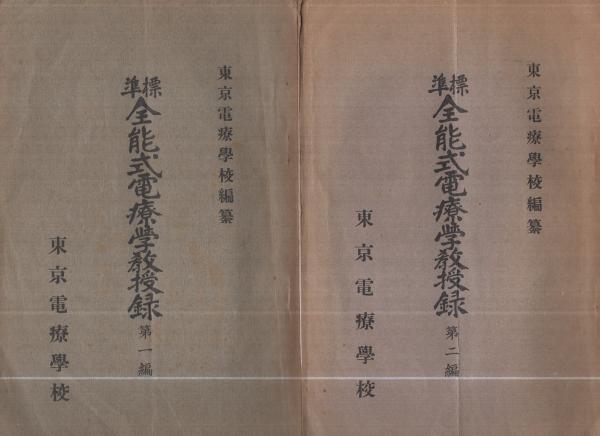 東京電療學校編纂
標準
全能式電療学教授録
第一編
東京電療學校
東京電療學校編纂
標準
全能式電療学教授録
第二編
東京電療學校